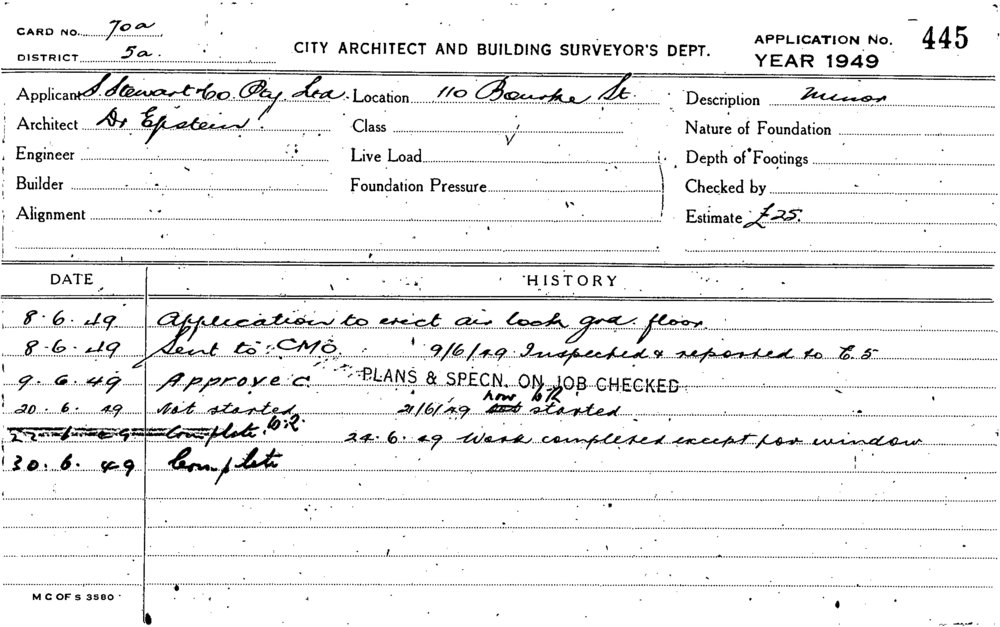 CARD NO. 70a
DISTRICT 5a.
CITY ARCHITECT AND BUILDING SURVEYOR'S DEPT.
APPLICATION No. 445
YEAR 1949
Applicant S. Stewart Co. Pty. Ltd. Location 110 Bourke St. Description Minor
Architect Dr Epstein. Class Nature of Foundation
Engineer Live Load Depth of Footings
Builder Foundation Pressure Checked by
Alignment Estimate £25.
DATE HISTORY
8.6.49 Application to erect air lock grd. floor
8.6.49 Sent to CMO 9/6/49 Inspected & reported to E.S
9.6.49 Approved PLANS & SPECN. ON JOB CHECKED
20.6.49 Not started 21/6/49 now started
22.6.49 Complete 24.6.49 Work completed except for window
30.6.49 Complete
M C OF S 3580